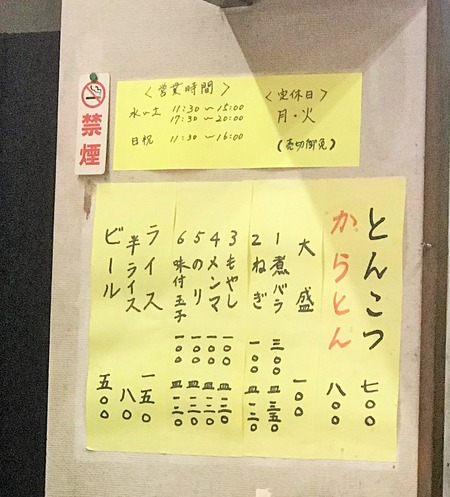 禁煙
〈営業時間〉
水〜土 11:30〜15:00
17:30〜20:00
日祝 11:30〜16:00
〈定休日〉
月・火
(売切御免)
とんこつ 七〇〇
からとん 八〇〇
大盛 一〇〇
1煮バラ 三〇〇 皿三五〇
2ねぎ 一〇〇 皿一二〇
3もやし 一〇〇 皿一二〇
4メンマ 一〇〇 皿一二〇
5のり 一〇〇 皿一二〇
6味付玉子 一〇〇 皿一二〇
ライス 一五〇
半ライス 八〇
ビール 五〇〇